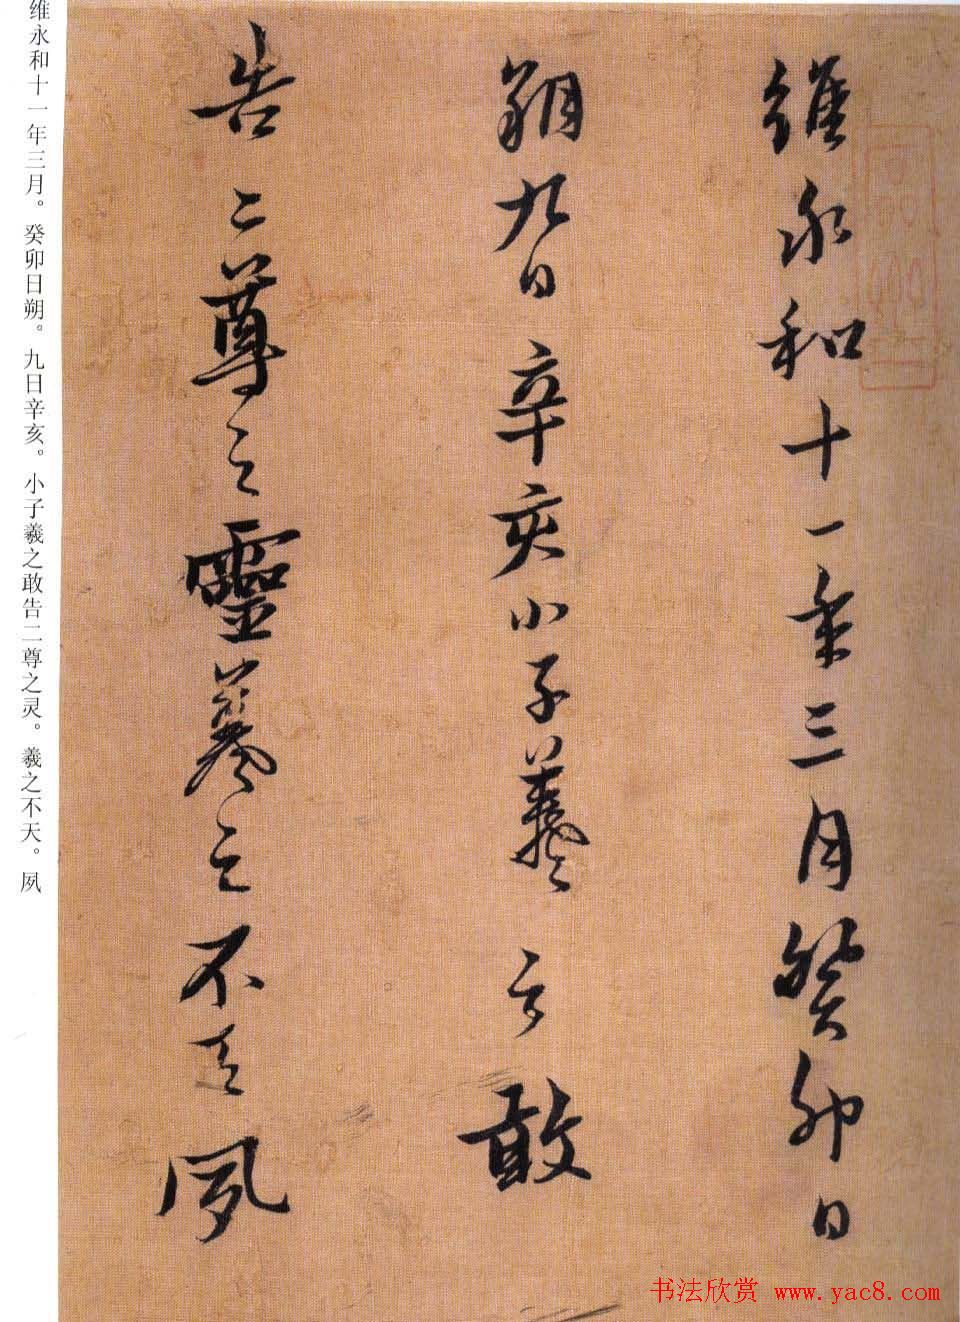 維永和十一年三月癸卯日
朔九日辛亥小子羲之敢
告二尊之靈羲之不天夙
维永和十一年三月。癸卯日朔。九日辛亥。小子羲之敢告二尊之灵。羲之不天。夙
书法欣赏 www.yac8.com